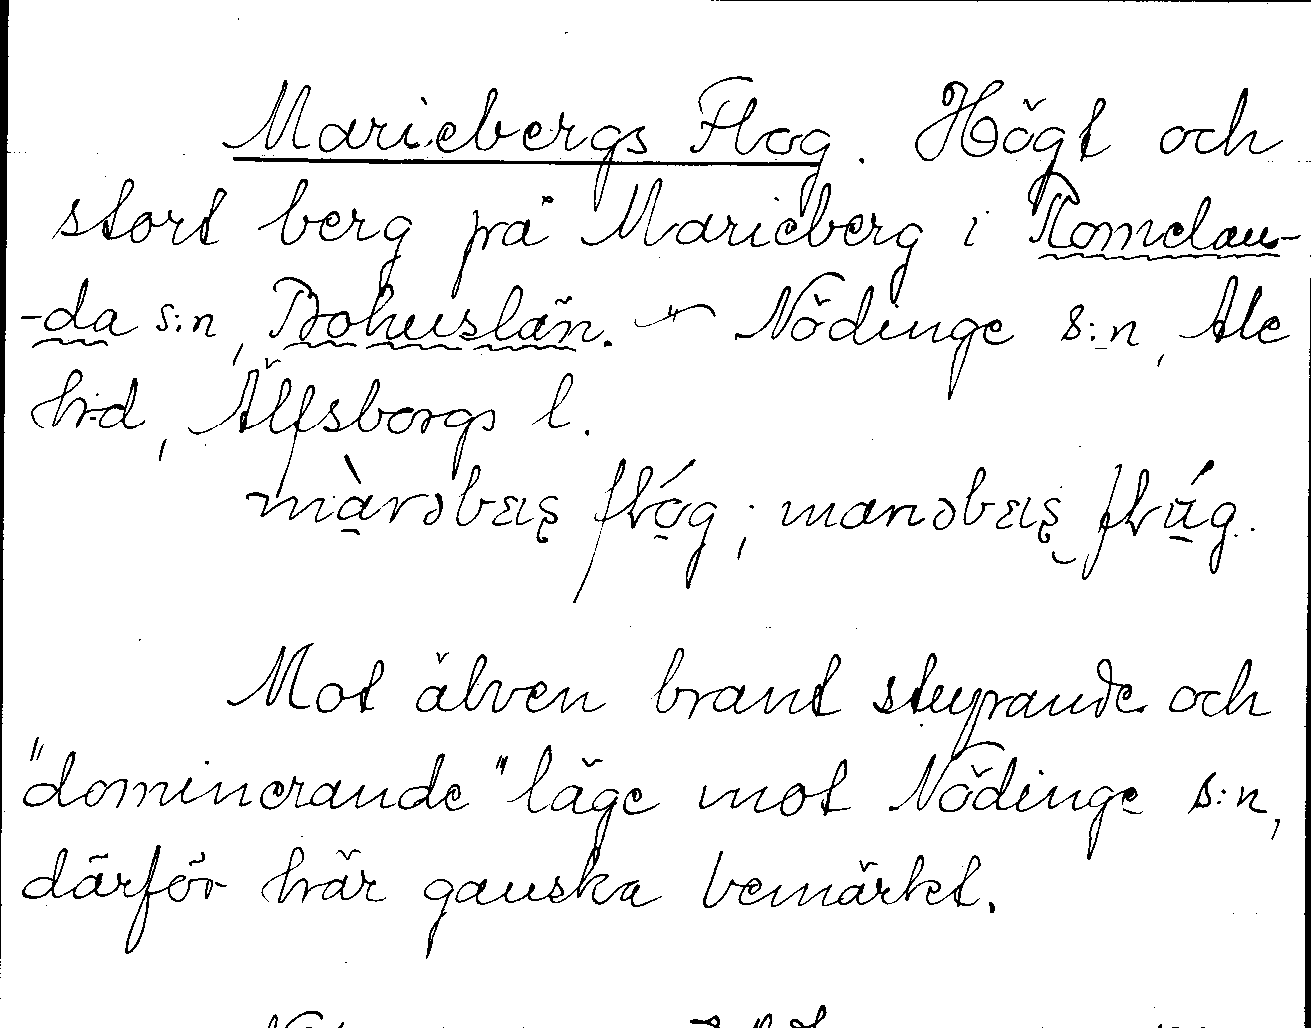 Mariebergs Flog. Högt och
stort berg på Marieberg i Romelan-
-da s:n, Bohuslän. — Nödinge s:n, Ale
h:d, Älfsborgs l.
Mot älven brant stupande och
"dominerande" läge mot Nödinge s:n,
därför här ganska bemärkt.